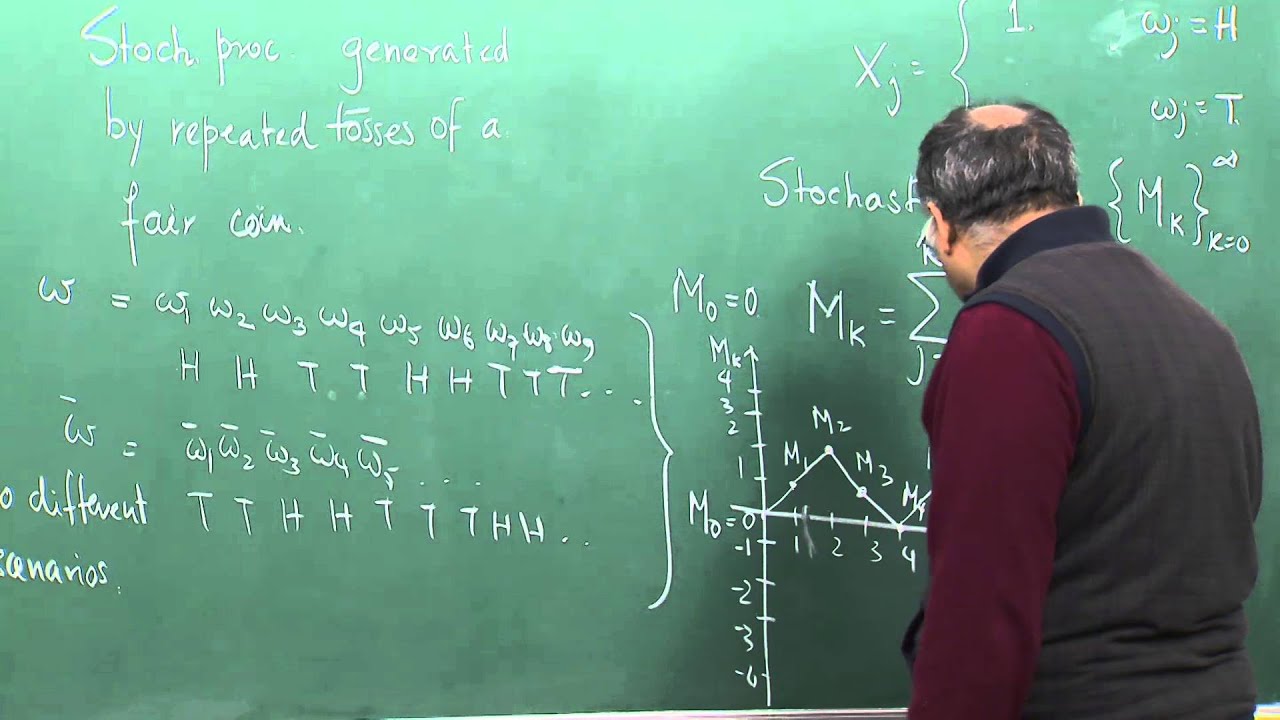 Stoch. proc. generated
by repeated tosses of a
fair coin.
ω = ω1 ω2 ω3 ω4 ω5 ω6 ω7 ω8 ω9
H H T T H H T T T ....
ω̄ = ω̄1 ω̄2 ω̄3 ω̄4 ω̄5 ....
o different T T H H T T T H H ..
scenarios.
Xj = { 1. ωj = H
ωj = T
Stochast {Mk}∞k=0
M0 = 0. Mk = ∑
j
Mk
4
3
2
1
M0 = 0
-1
-2
-3
-4
M1 M2 M3 M4
1 2 3 4